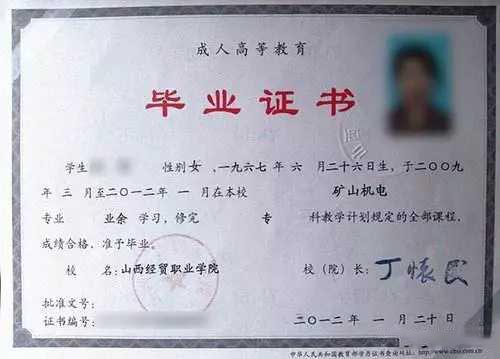 成人高等教育
毕业证书
学生 性别 女 ,一九六七年 六 月二十六日生,于二〇〇九
年 三 月至二〇一二年 一 月在本校 矿山机电
专业 业余 学习,修完 专 科教学计划规定的全部课程,
成绩合格,准予毕业。
校 名:山西经贸职业学院 校(院)长:
批准文号:
证书编号: 二〇一二年 一 月二十日
中华人民共和国教育部学历证书查询网址:http://www.chsi.com.cn